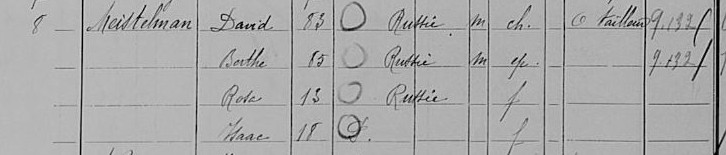 8 Meistelman David 83 Russie m ch. O tailleur 9.132/
Berthe 85 Russie m ep. 9.132/
Rosa 13 Russie f
Isaac 18 d. f